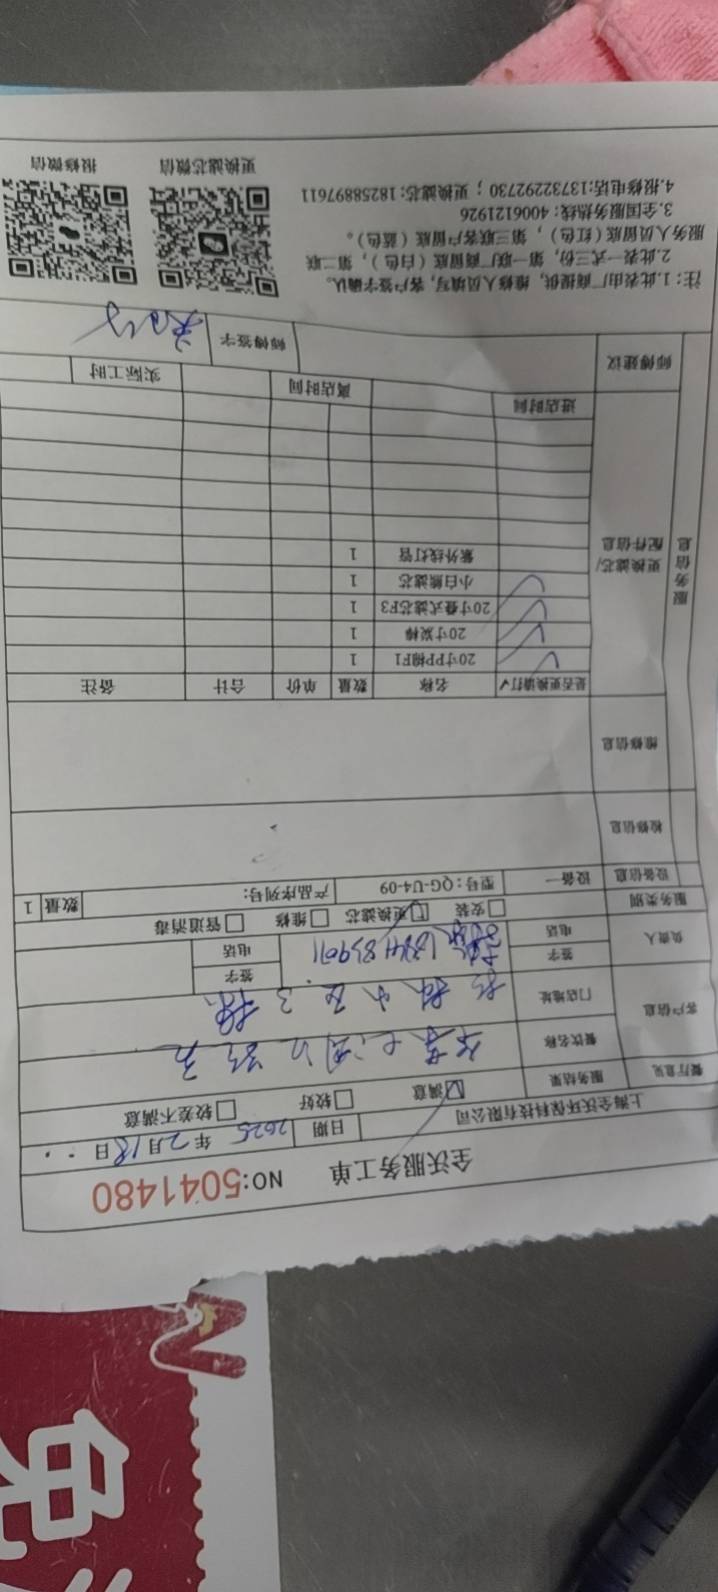 全沃服务工单 NO:5041480
上海全沃环保科技有限公司 日期 2025 年 2 月 18 日
餐厅意见 服务结果 ☑满意 □较好 □较差不满意
客户信息 餐饮名称
门店地址
负责人 签字 签字
电话 电话
服务类别 □安装 ☑更换滤芯 □维修 □管道消毒
设备信息 设备一 型号:QG-U4-09 产品序列号: 数量 1
检修信息
维修信息
服务信息 更换滤芯/配件信息
是否更换请打√ 名称 数量 单价 合计 备注
√ 20寸PP棉F1 1
√ 20寸炭棒 1
√ 20寸叠式滤芯F3 1
√ 小白熊滤芯 1
紫外线灯管 1
进店时间 离店时间 实际工时
师傅建议 师傅签字
注:1.此表由厂商提供,维修人员填写,客户签字确认。
2.此表一式三份,第一联厂商留底(白色),第二联
服务人员留底(红色),第三联客户留底(蓝色)。
3.全国服务热线:4006121926
4.报修电话:13732292730;更换滤芯:18258897611
更换滤芯微信 报修微信
免